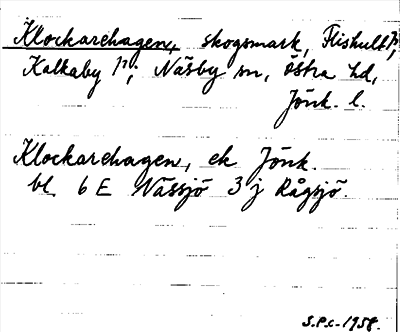 Klockarehagen, skogsmark, Flishult 1²,
Kalkaby 1²; Näsby sn, Östra hd,
Jönk. l.
Klockarehagen, ek Jönk.
bl. 6 E Nässjö 3 j Rågsjö.
S.P.c. 1958.